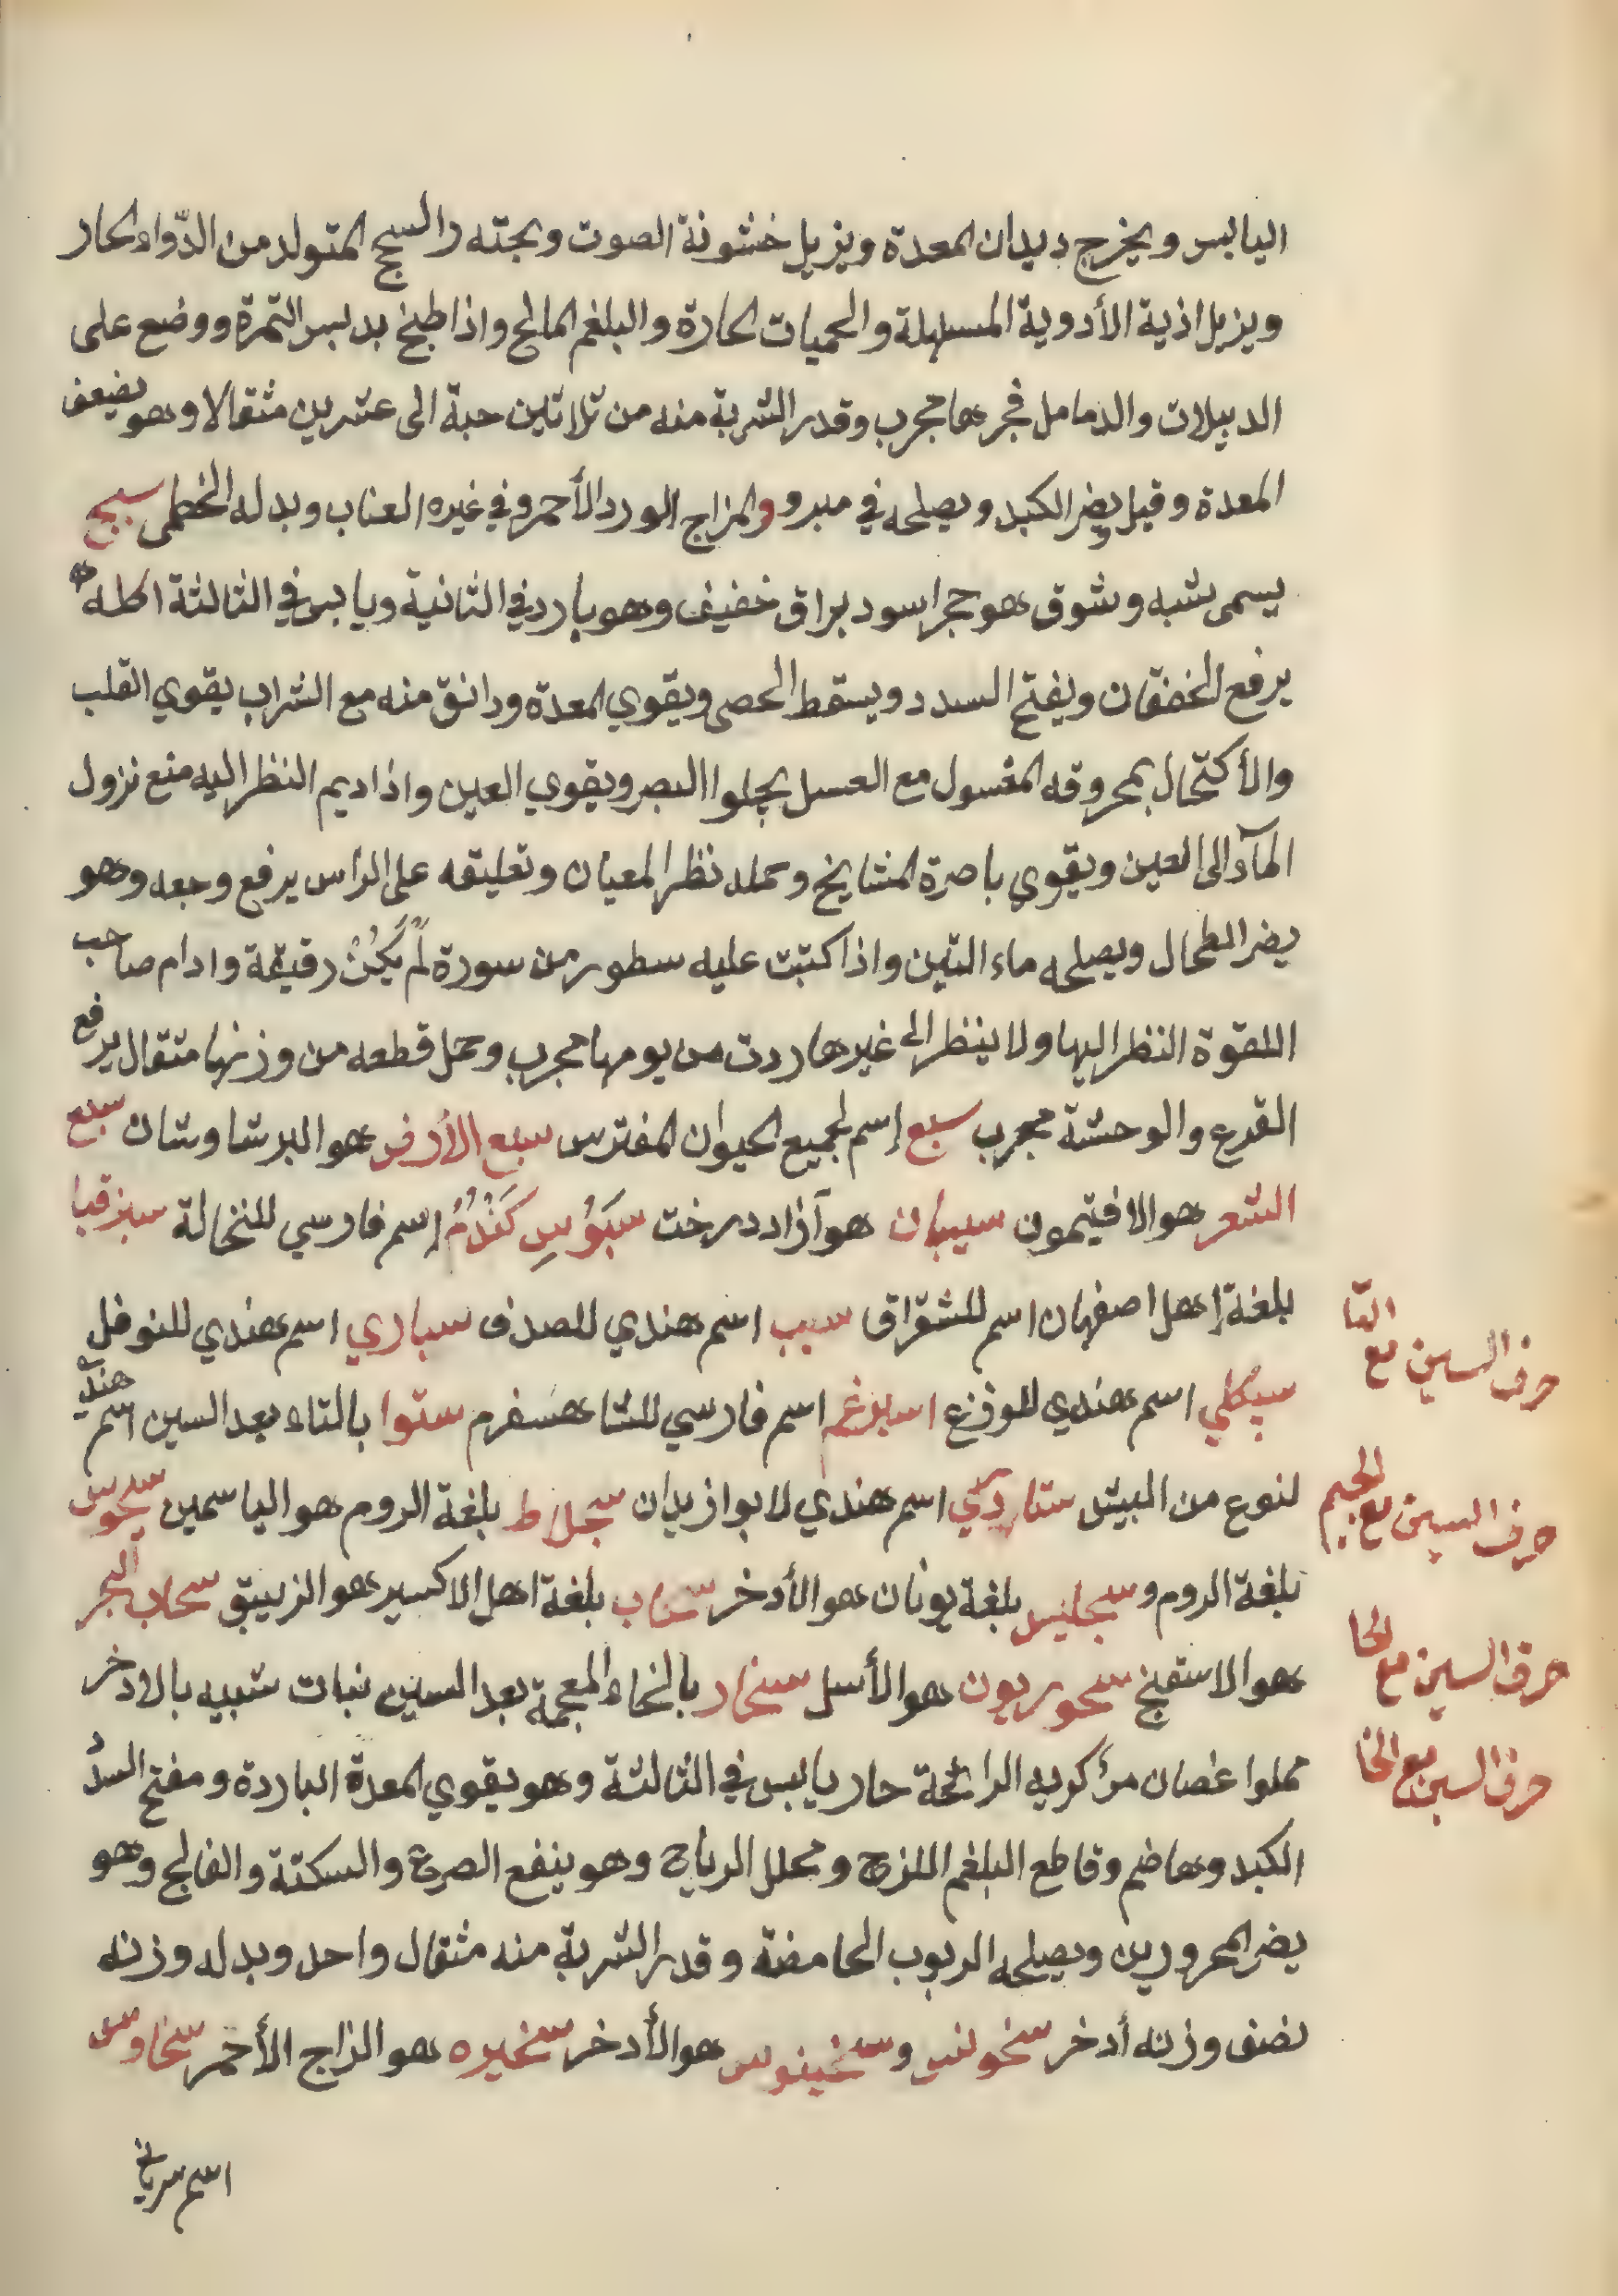 اليابس ويخرج ديدان المعدة ويزيل خشونة الصوت وبحته والسحج المتولد من الدّواء الحار
ويزيل اذية الأدوية المسهلة والحميات الحارة والبلغم المالح واذا طبخ بدبس التمرة ووضع على
الدبيلات والدمامل فجرها مجرب وقدر الشربة منه من ثلاثين حبة الى عشرين مثقالا وهو يضعف
المعدة وقيل يضر الكبد ويصلحه في مبرود المزاج الورد الأحمر وفي غيره العناب وبدله الخطمى سبج
يسمى شبه وشوق هو حجر اسود براق خفيف وهو بارد في الثانية ويابس في الثالثة اكله
يرفع الخفقان ويفتح السدد ويسقط الحصى ويقوي المعدة ودانق منه مع الشراب يقوي القلب
والأكتحال بمحروقه المغسول مع العسل يجلوا البصر ويقوي العين واذا ديم النظر اليه منع نزول
المآء الى العين ويقوي باصرة المشايخ وحمله نظر المعيان وتعليقه على الراس يرفع وجعه وهو
يضر الطحال ويصلحه ماء التين واذا كتبت عليه سطور من سورة لَمْ يَكُنْ رقيقة وادام صاحب
اللقوة النظر اليها ولا ينظر الى غيرها ردت من يومها مجرب وحمل قطعه من وزنها مثقال يرفع
القرع والوحشة مجرب سبع إسم لجميع الحيوان المفترس سبع الأرض هو البرشاوشان سبع
الشعر هو الافتيمون سيبان هو آزاد درخت سَبَوُسِ كَنْدُمُ إسم فارسي للنخالة سبزقبا
بلغة إهل اصفهان اسم للشقّراق سبب اسم هندي للصدف سباري اسم هندي للنوفل
سبكلي اسم هندي للوزغ اسبرغم اسم فارسي للشاهسفرم ستوا بالتاء بعد السين اسم هنديّ
لنوع من البيش ستاركي اسم هندي لابوازيدان سجلاط بلغة الروم هو الياسمين سجوس
بلغة الروم وسجليس بلغة يونان هو الأدخر سحاب بلغة اهل الاكسير هو الزيبق سحاب البحر
هو الاسفنج سحوريون هو الأسل سنخار بالخاء المعجمة بعد السين نبات شبيه بالادخر
مملوا غصان مرّ كريه الرائحة حار يابس في الثالثة وهو يقوي المعدة الباردة ومفتح السدّ
الكبد وهاضم وقاطع البلغم اللزج ومحلل الرياح وهو ينفع الصرع والسكتة والفالج وهو
يضر المحرورين ويصلحه الربوب الحامضة وقدر الشربة منه مثقال واحد وبدله وزنه
نصف وزنه أدخر سخونس وسخينوس هو الأدخر سخيره هو الزاج الأحمر سخاوس
اسم سرياني
حرف السين مع التا
حرف السين مع الجيم
حرف السين مع الحا
حرف السين مع الخا